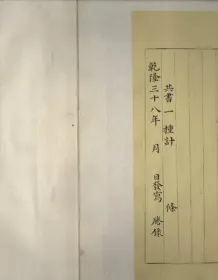 共書一種計　條
乾隆三十八年　月　日發寫　謄錄